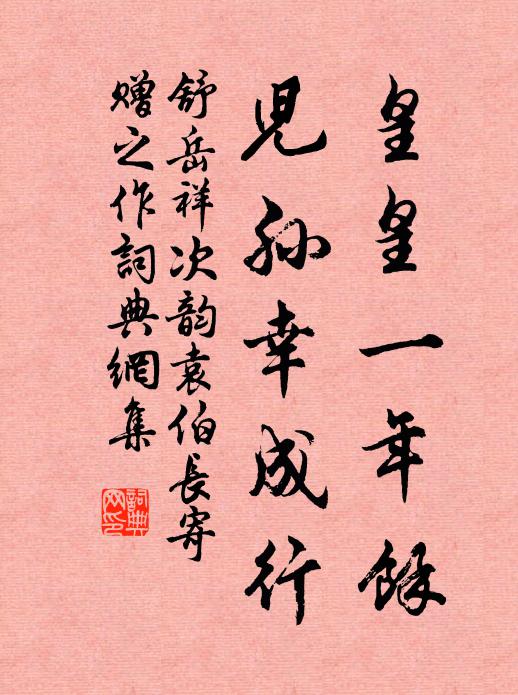 皇皇一年餘
兒孫幸成行
舒岳祥次韵袁伯長寄
贈之作詞典網集
詞典網印